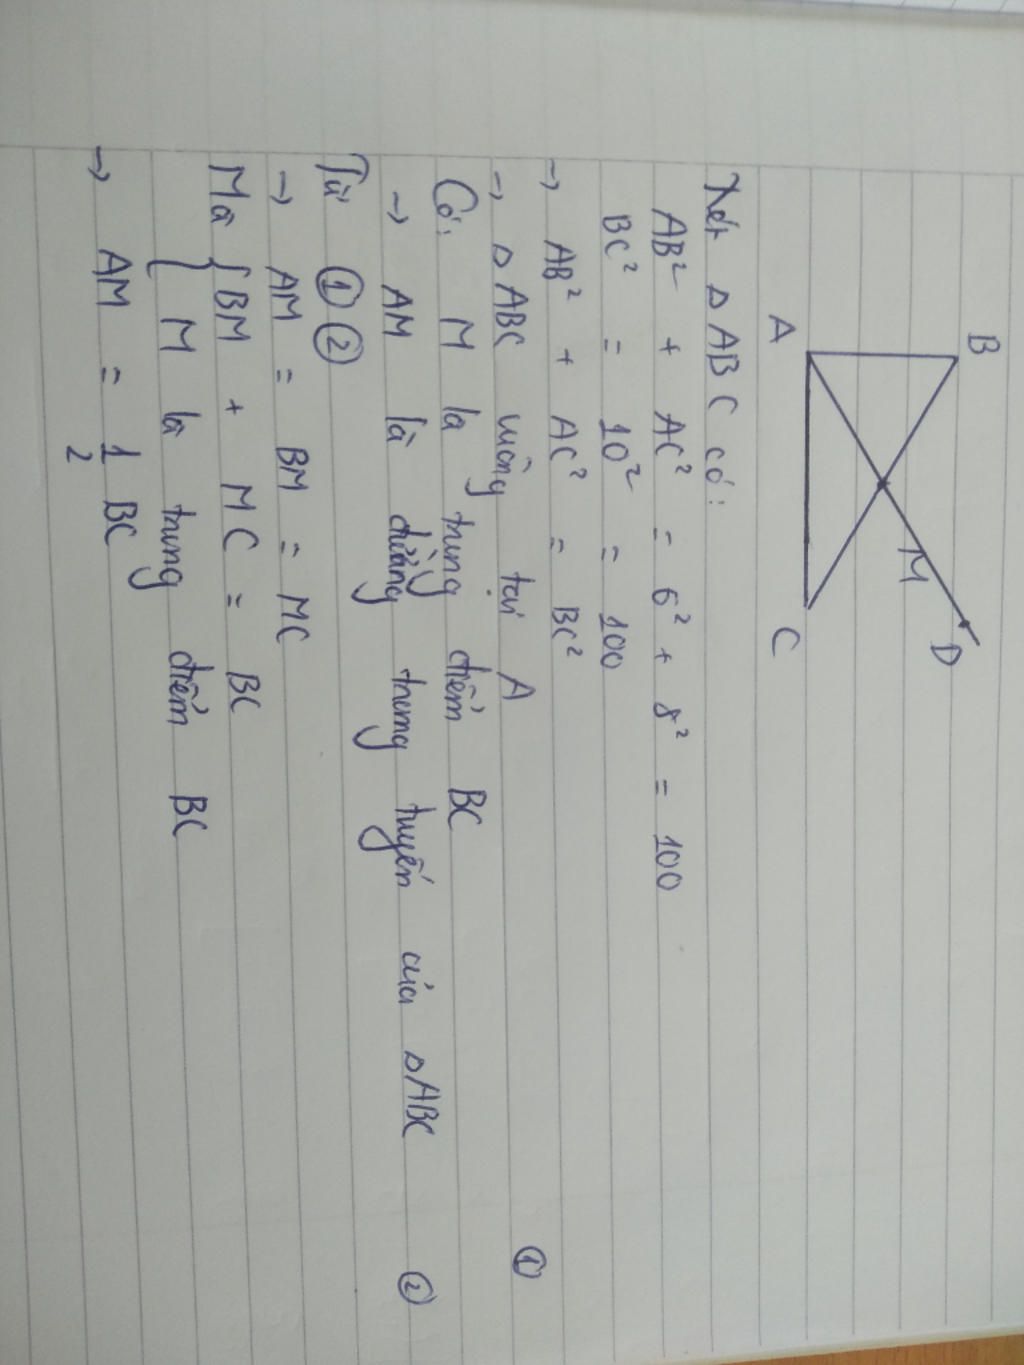 B
A
C
D
M
Xét Δ ABC có:
AB² + AC² = 6² + 8² = 100
BC² = 10² = 100
→ AB² + AC² = BC²
→ Δ ABC vuông tại A ①
Có: M là trung điểm BC
→ AM là đường trung tuyến của Δ ABC ②
Từ ① ②
→ AM = BM = MC
Mà { BM + MC = BC
{ M là trung điểm BC
→ AM = 1/2 BC